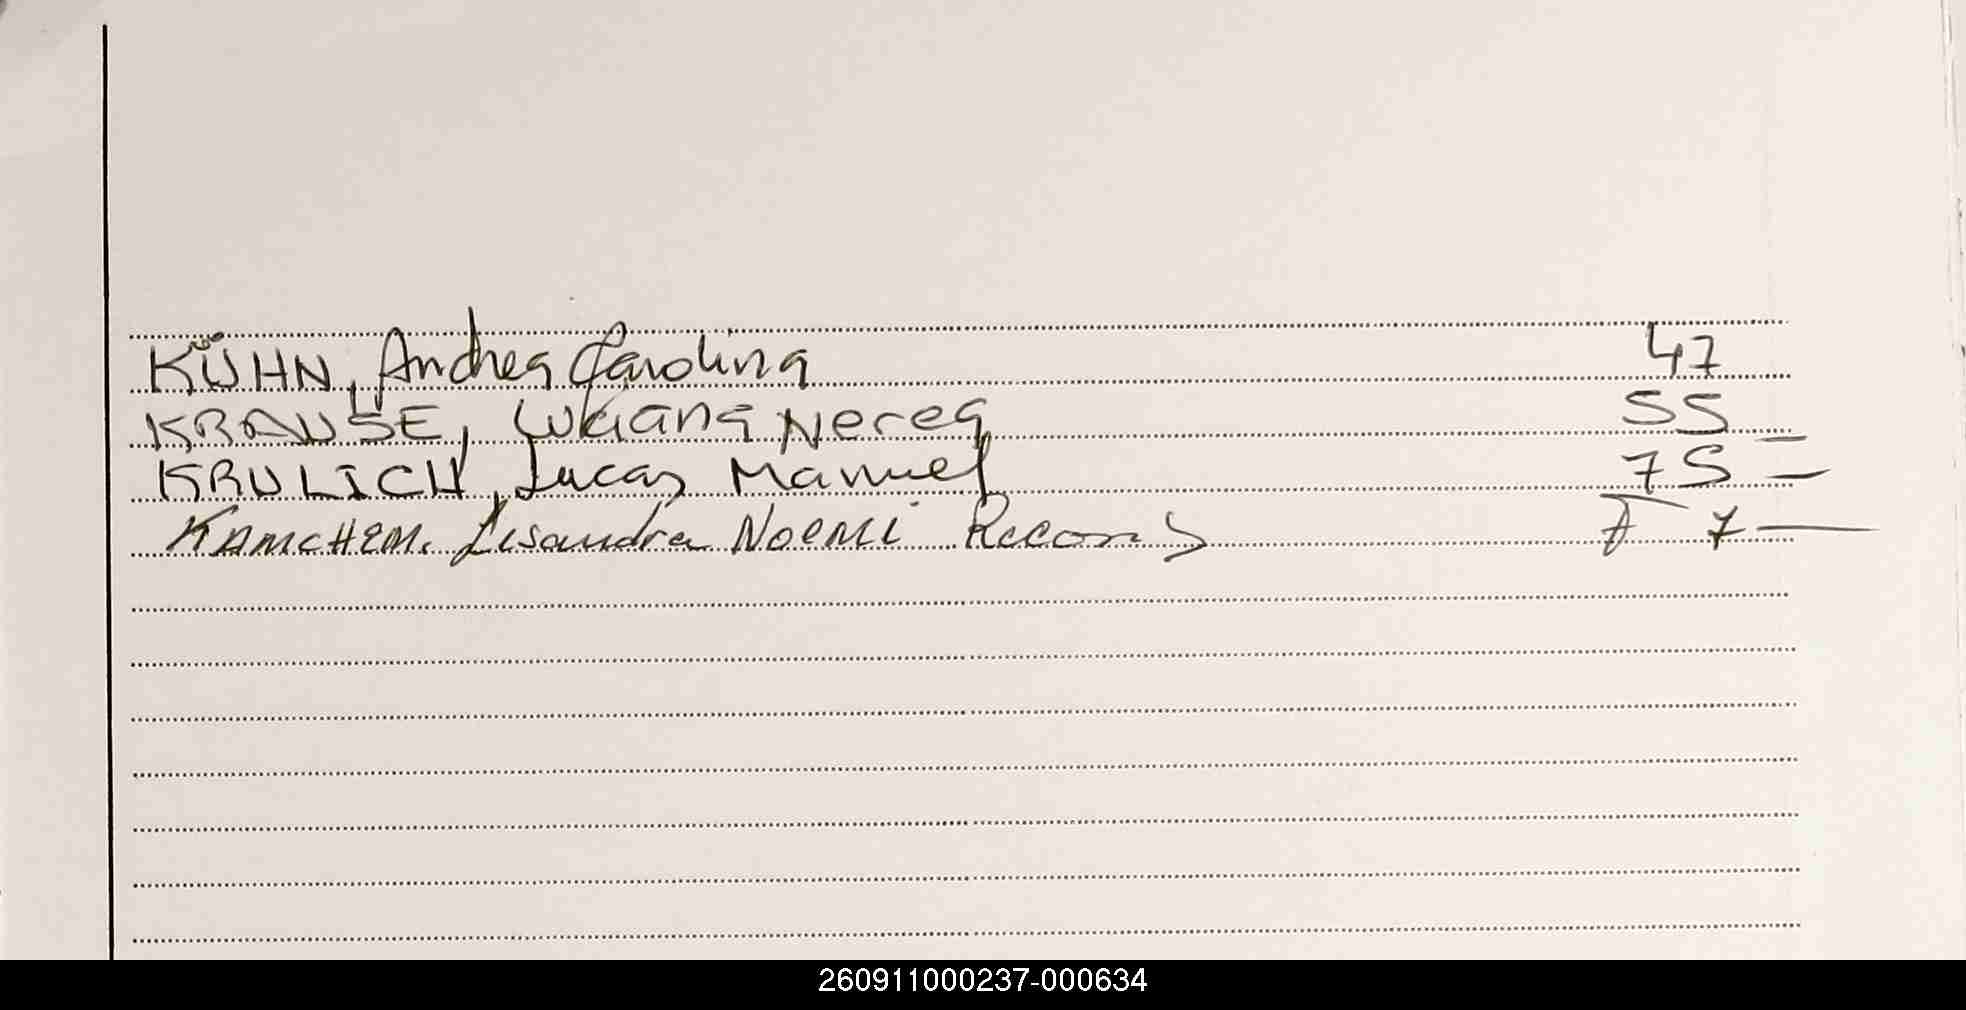 KÜHN, Andrea Carolina 47
KRAUSE, Luciana Nerea 55
KRULICH, Lucas Manuel 75 —
Lisandra Noemi 7 —
260911000237-000634